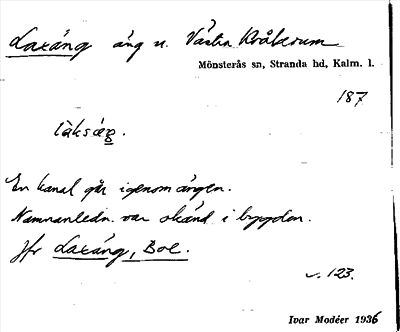 Laxäng äng n. Västra Kråkerum
Mönsterås sn, Stranda hd, Kalm. l.
187
En kanal går igenom ängen.
Namnanledn. var okänd i bygden.
Jfr Laxäng, Boe.
s. 123.
Ivar Modéer 1936